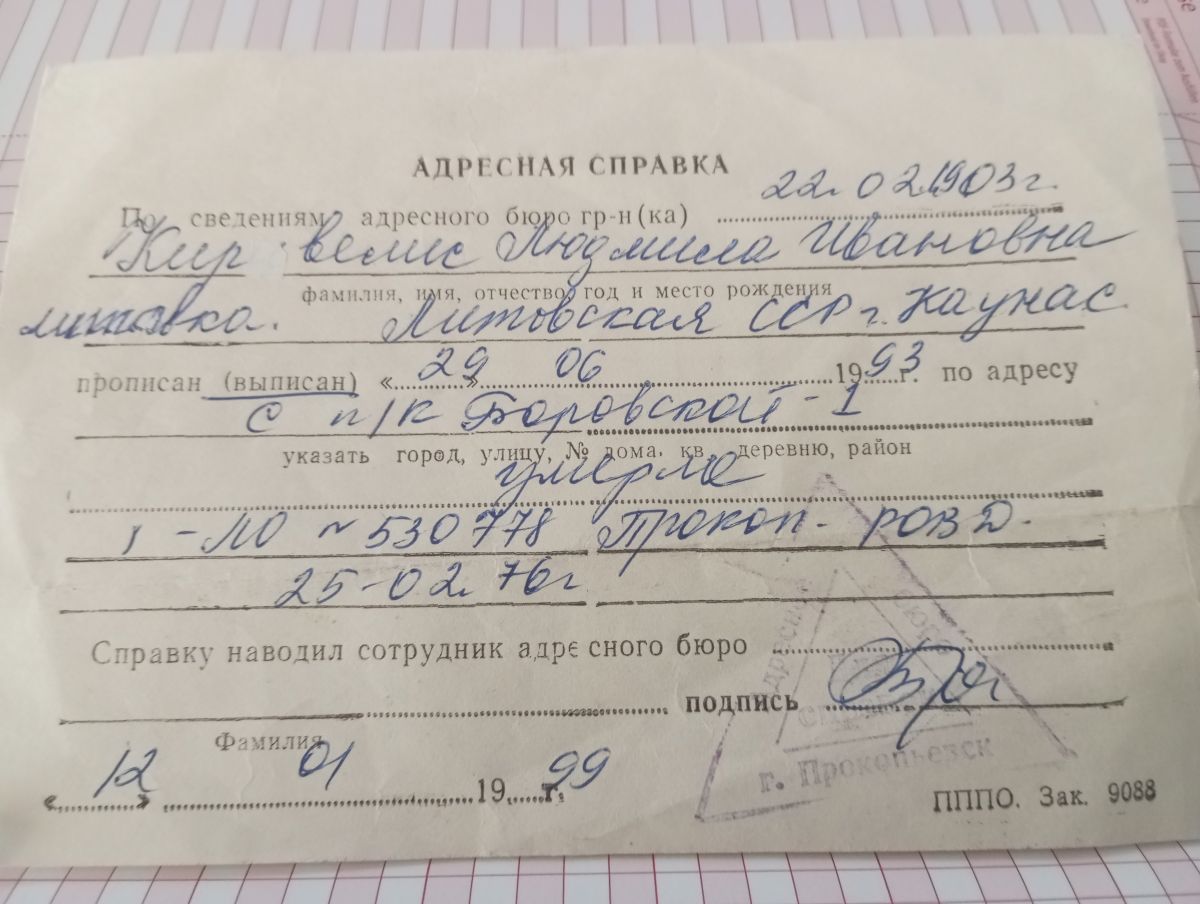 АДРЕСНАЯ СПРАВКА
По сведениям адресного бюро гр-н(ка) 22.02.1903г.
Кир велис Людмила Ивановна
фамилия, имя, отчество, год и место рождения
литовка. Литовская ССР г. Каунас
прописан (выписан) «29» 06 1993г. по адресу
с п/к Боровской-1
указать город, улицу, № дома, кв, деревню, район
умерла
I-ЛО № 530778 Прокоп. РОВД.
25-02.76г
Справку наводил сотрудник адресного бюро
подпись
Фамилия
«12» 01 1999г.
г. Прокопьевск
ПППО. Зак. 9088